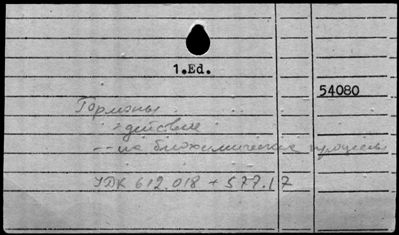 1.Ed.
54080
Гормоны
- действие
-- на биохимические процессы
УДК 612.018 + 577.17